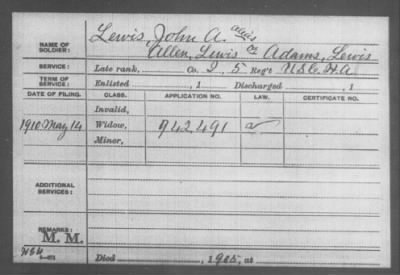 Lewis, John A. alias
NAME OF SOLDIER: Allen, Lewis or Adams, Lewis
SERVICE: Late rank, Co. I, 5 Reg't U.S.C.H.A.
TERM OF SERVICE: Enlisted , 1 Discharged , 1
DATE OF FILING. CLASS. APPLICATION NO. LAW. CERTIFICATE NO.
Invalid,
1910 May 14 Widow, 942,491
Minor,
ADDITIONAL SERVICES:
REMARKS:
M. M.
Died , 1905, at